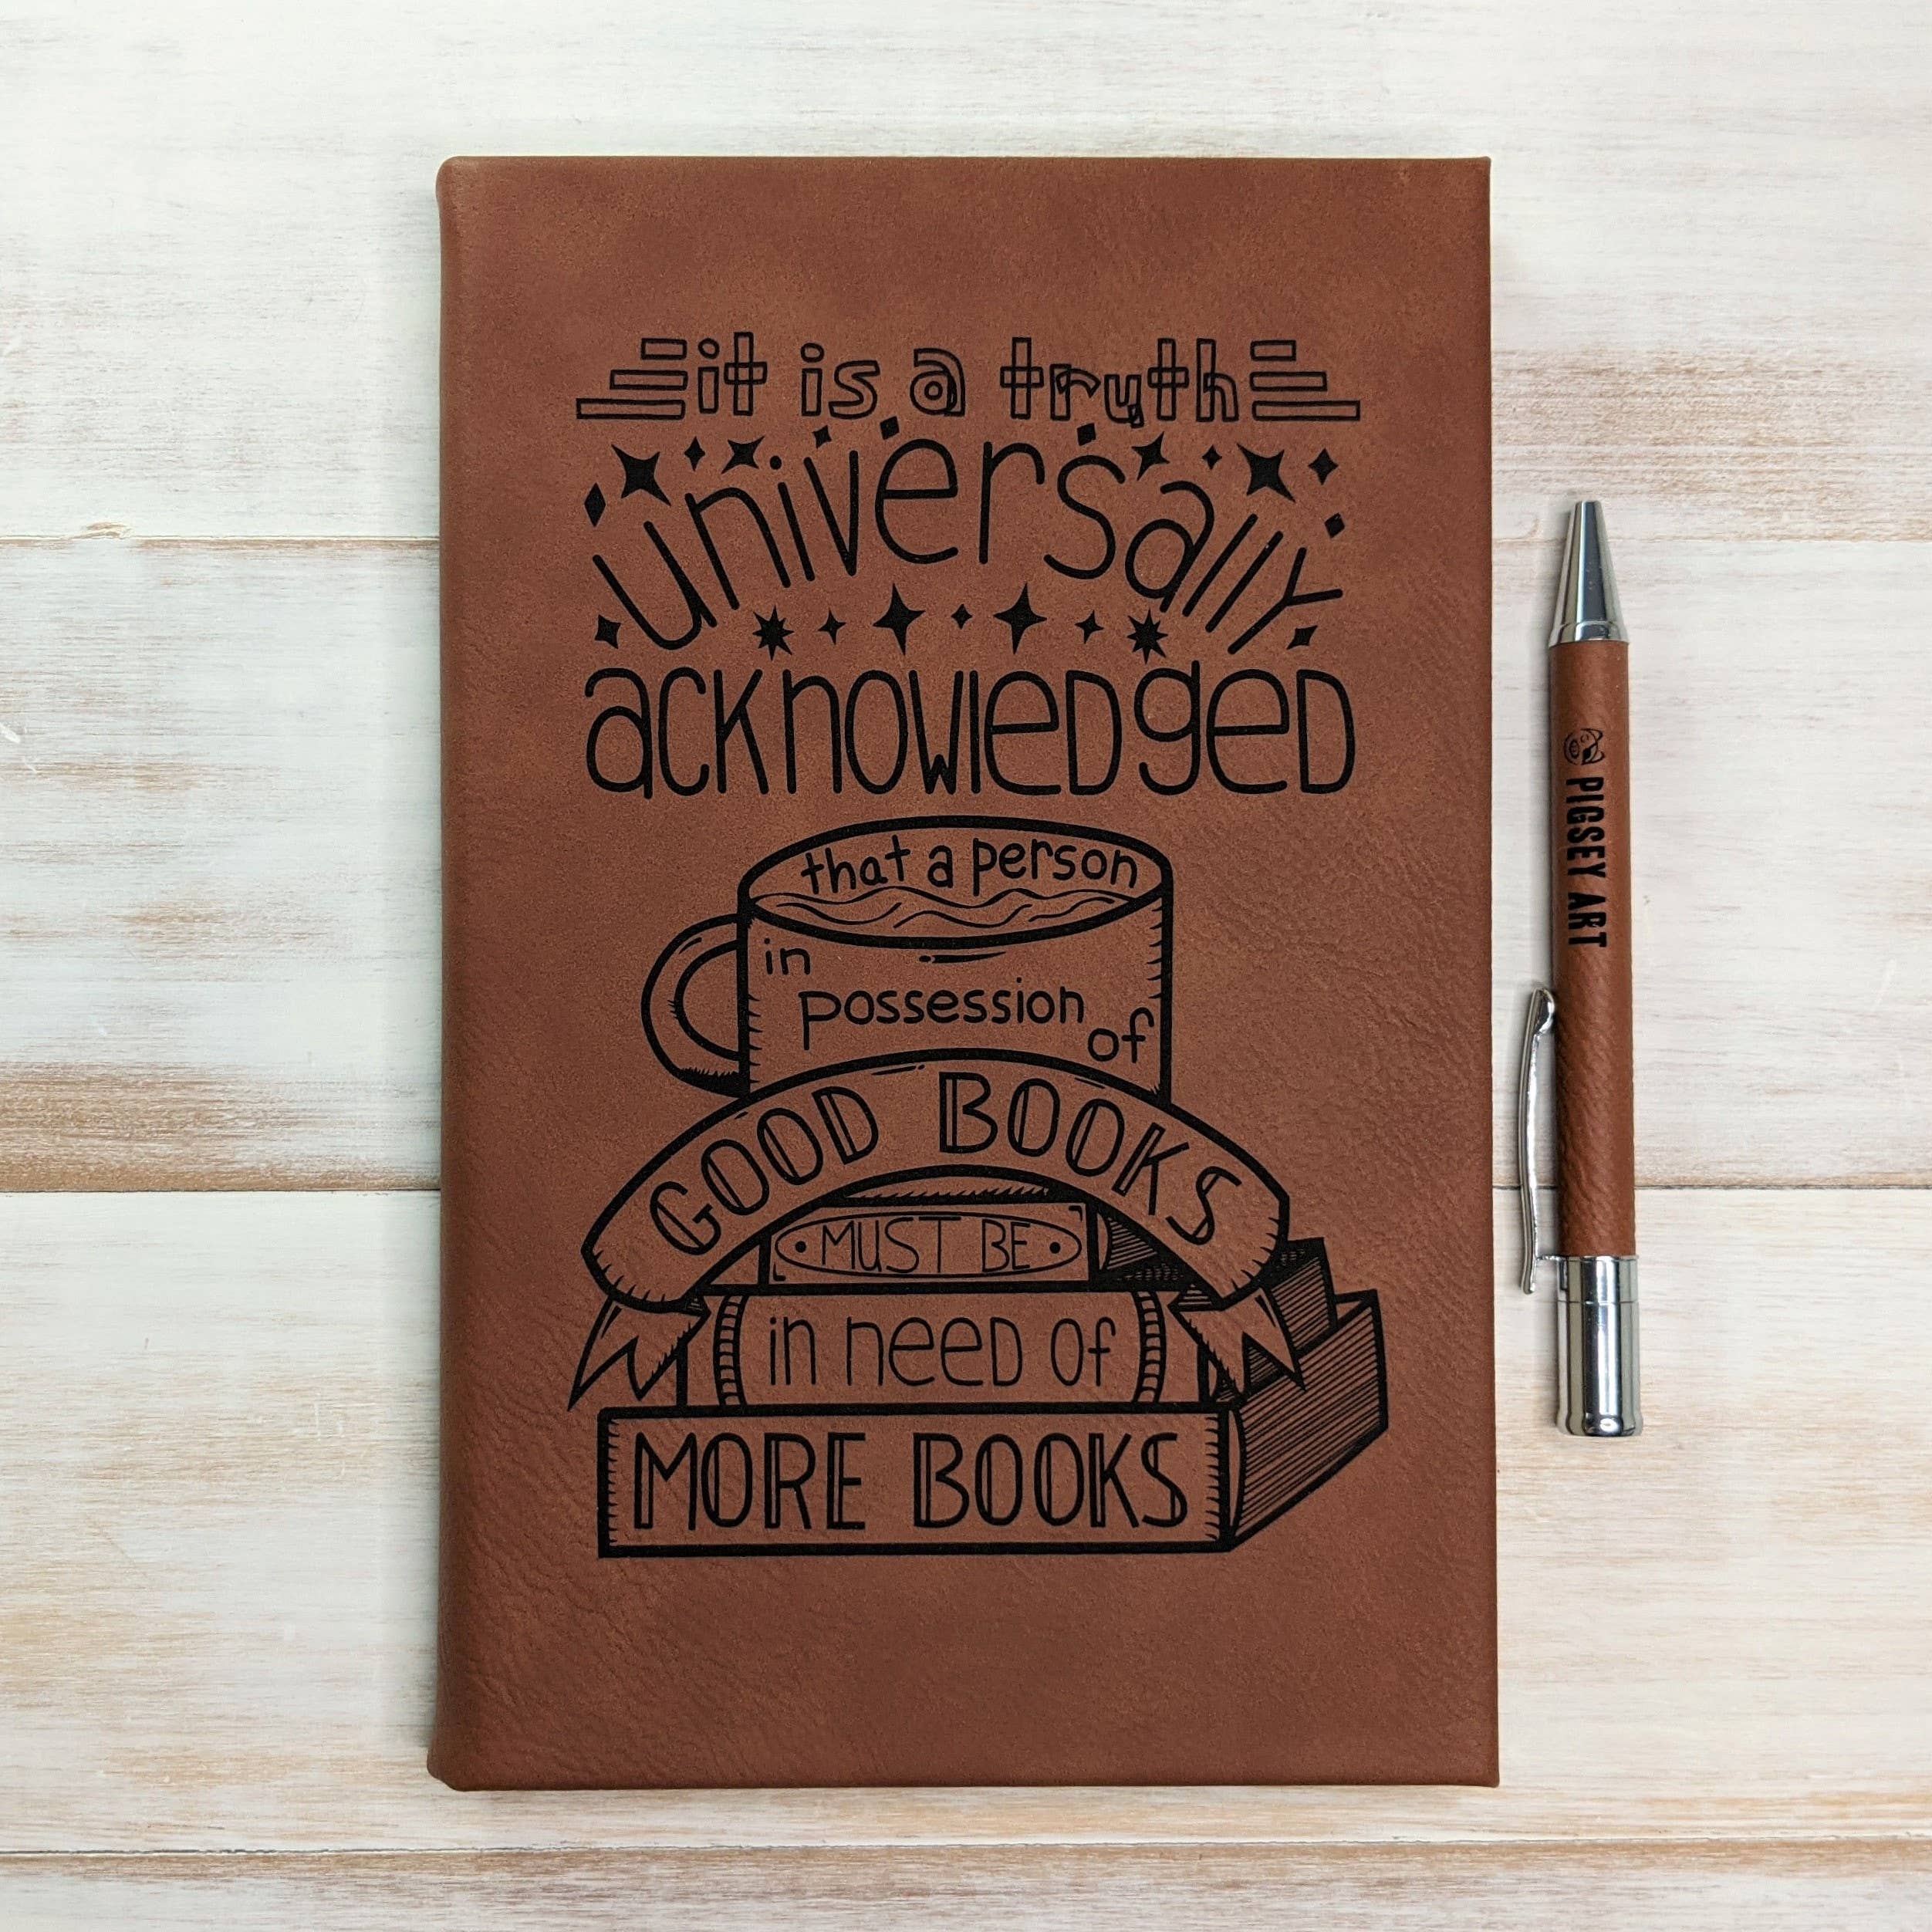 it is a truth
universally
acknowledged
that a person
in
possession
of
GOOD BOOKS
MUST BE
in need of
MORE BOOKS
PIGSEY ART